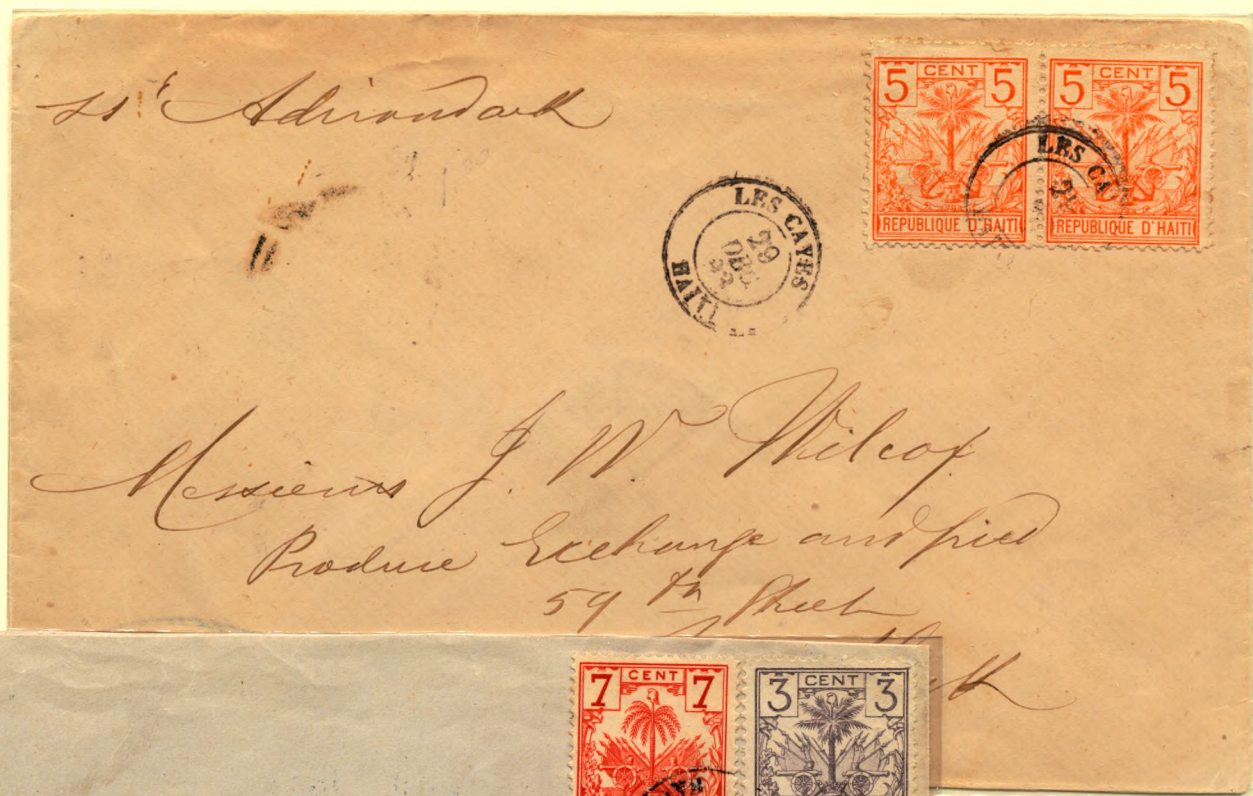 ss Adirondack
5 CENT 5
REPUBLIQUE D'HAITI
5 CENT 5
REPUBLIQUE D'HAITI
LES CAYES
29
DEC
HAITI
LES CAY
Messieurs J. W. Wilcox
Produce Exchange and pied
59th Street
7 CENT 7
3 CENT 3